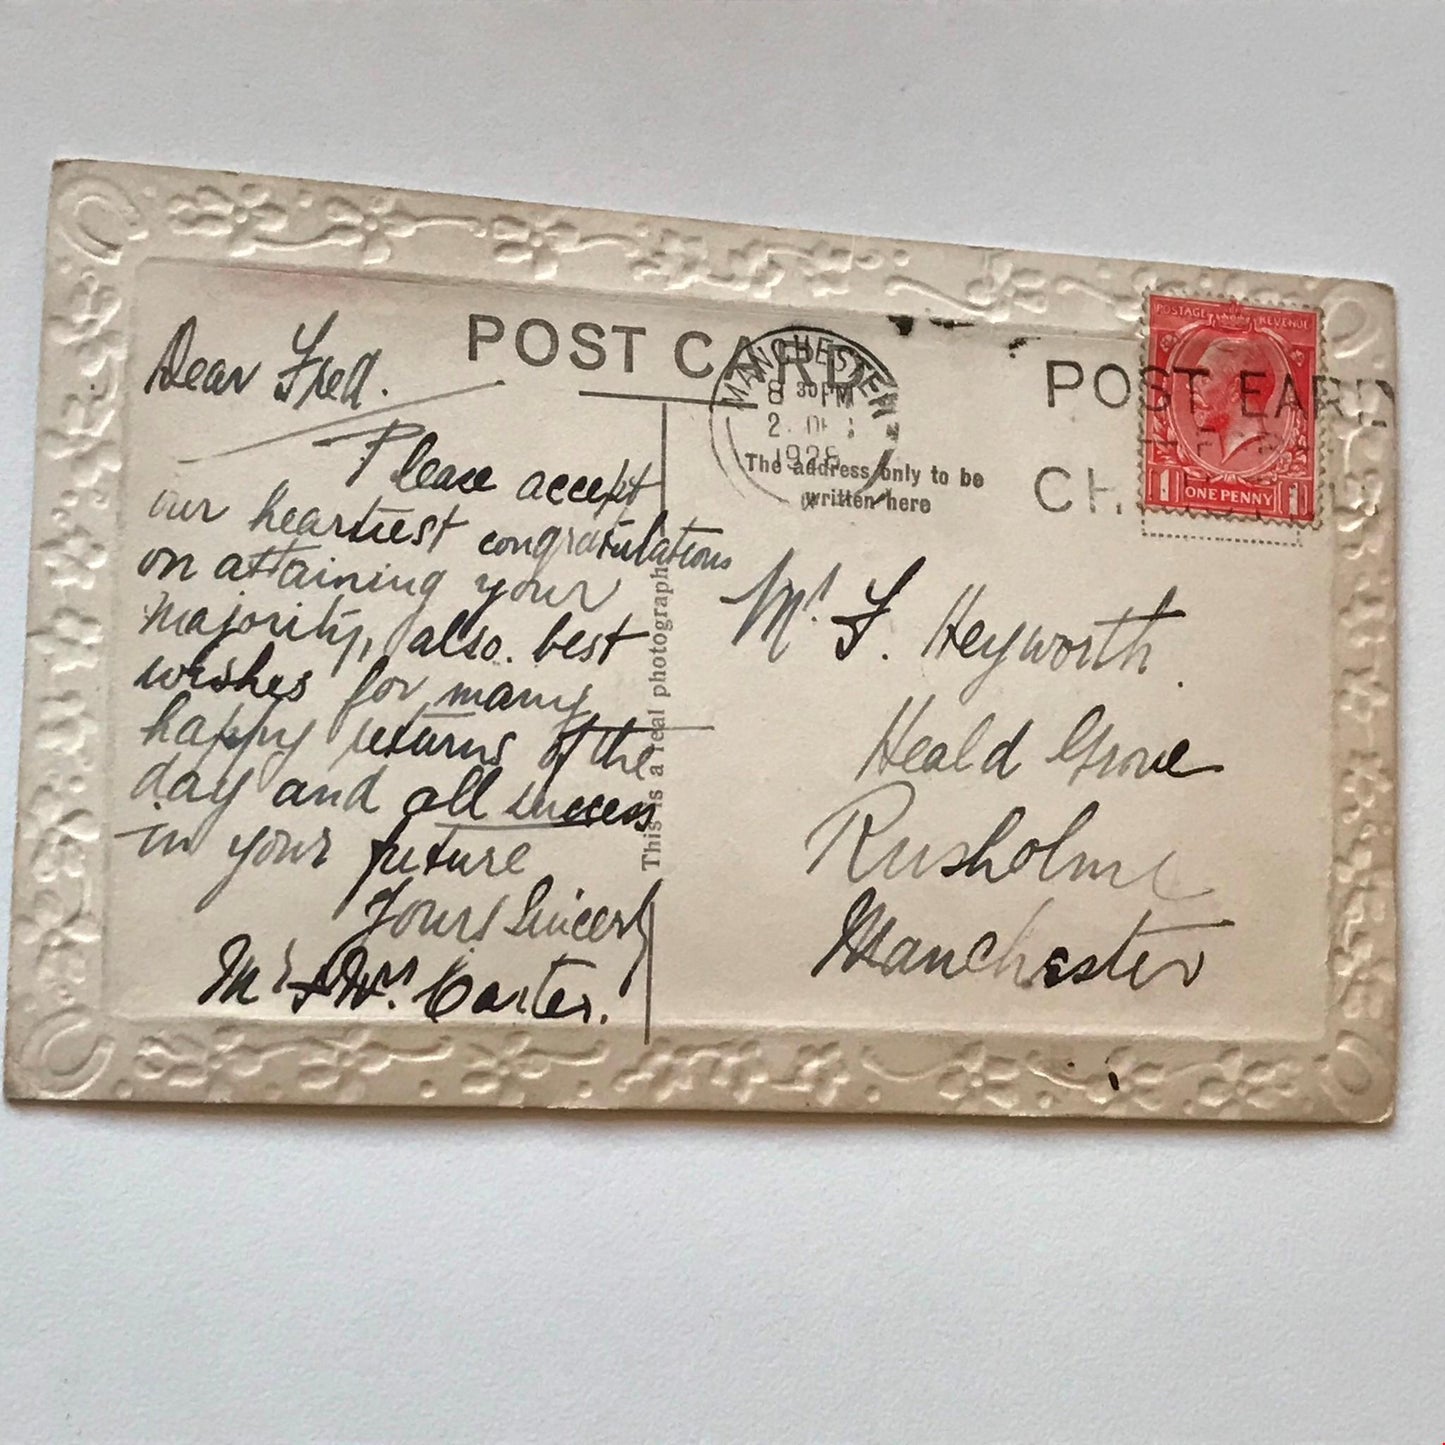 POST CARD
Dear Fred.
Please accept
our heartiest congratulations
on attaining your
majority, also. best
wishes for many
happy returns of the
day and all success
in your future
Yours Sincerly
Mr & Mrs. Carter.
This is a real photograph
MANCHESTER
8 30 PM
1928
The address only to be
written here
POST EARLY
POSTAGE REVENUE
1 ONE PENNY 1
Mr. F. Heyworth.
Heald Grove
Rusholme
Manchester